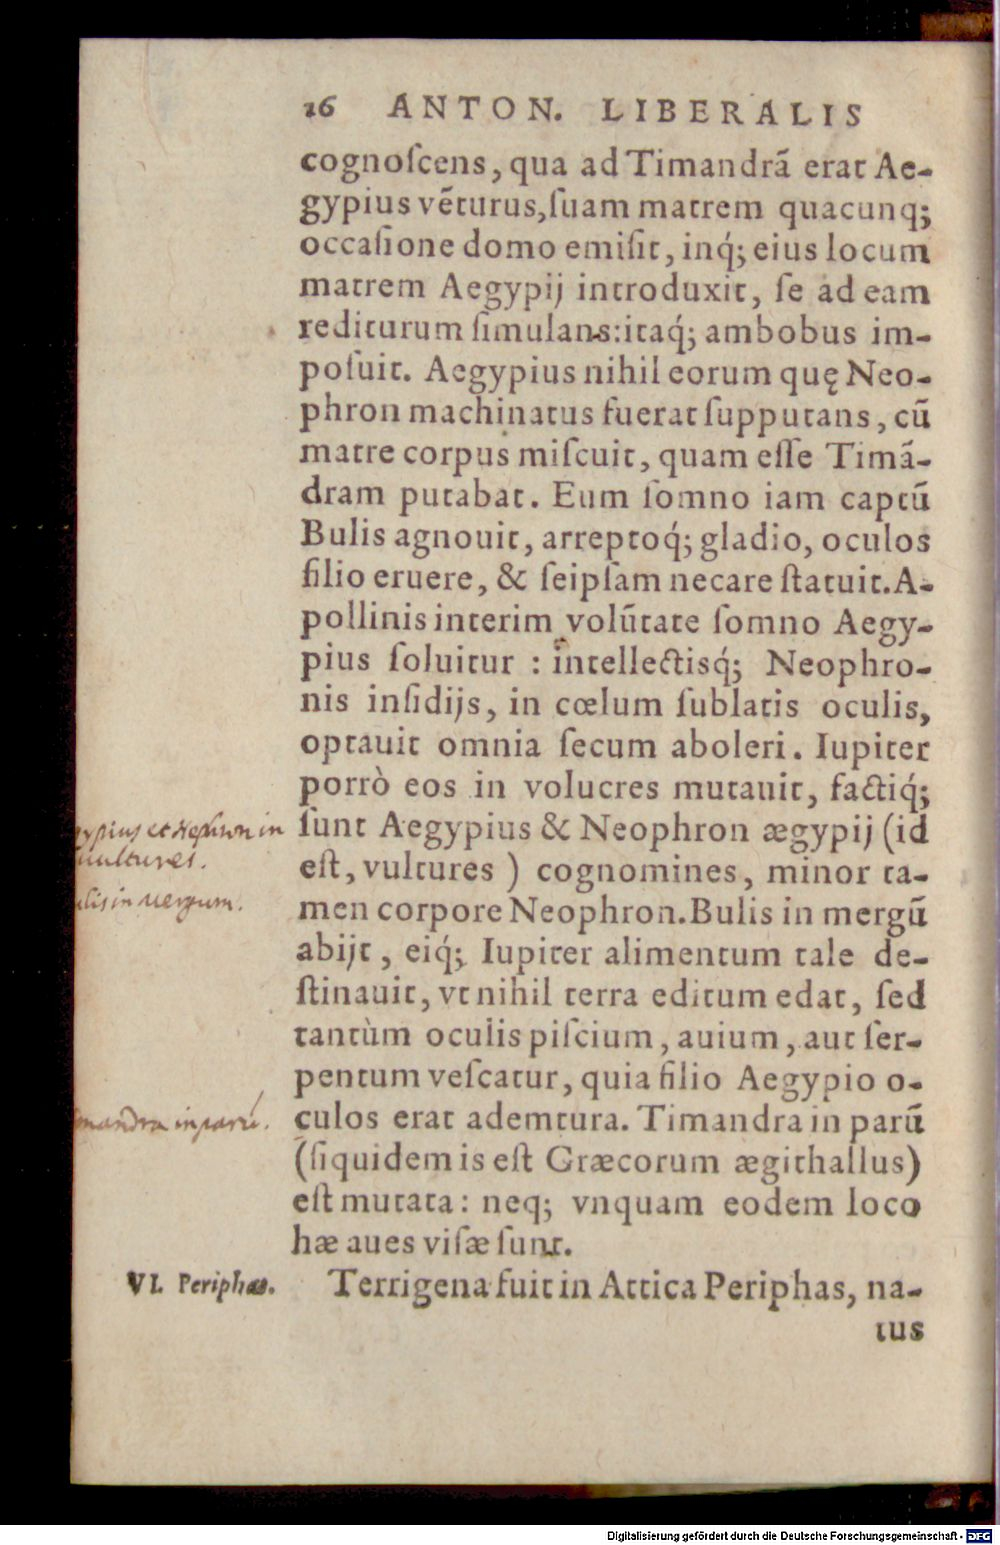 16 ANTON. LIBERALIS
cognoſcens, qua ad Timandrā erat Ae-
gypius vēturus, ſuam matrem quacunq;
occaſione domo emiſit, inq́; eius locum
matrem Aegypij introduxit, ſe ad eam
rediturum ſimulans: itaq́; ambobus im-
poſuit. Aegypius nihil eorum quę Neo-
phron machinatus fuerat ſupputans, cū
matre corpus miſcuit, quam eſſe Timā-
dram putabat. Eum ſomno iam captū
Bulis agnouit, arreptoq́; gladio, oculos
filio eruere, & ſeipſam necare ſtatuit. A-
pollinis interim volūtate ſomno Aegy-
pius ſoluitur : intellectisq́; Neophro-
nis inſidijs, in cœlum ſublatis oculis,
optauit omnia ſecum aboleri. Iupiter
porrò eos in volucres mutauit, factiq́;
ſunt Aegypius & Neophron ægypij (id
eſt, vultures ) cognomines, minor ta-
men corpore Neophron. Bulis in mergū
abijt, eiq́; Iupiter alimentum tale de-
ſtinauit, vt nihil terra editum edat, ſed
tantùm oculis piſcium, auium, aut ſer-
pentum veſcatur, quia filio Aegypio o-
culos erat ademtura. Timandra in parū
(ſiquidem is eſt Græcorum ægithallus)
eſt mutata: neq; vnquam eodem loco
hæ aues viſæ ſunt.
Terrigena fuit in Attica Periphas, na-
tus
gypius et Nephron in
uultures.
ulis in mergum.
mandra in parū.
VI. Periphas.
Digitalisierung gefördert durch die Deutsche Forschungsgemeinschaft - DFG